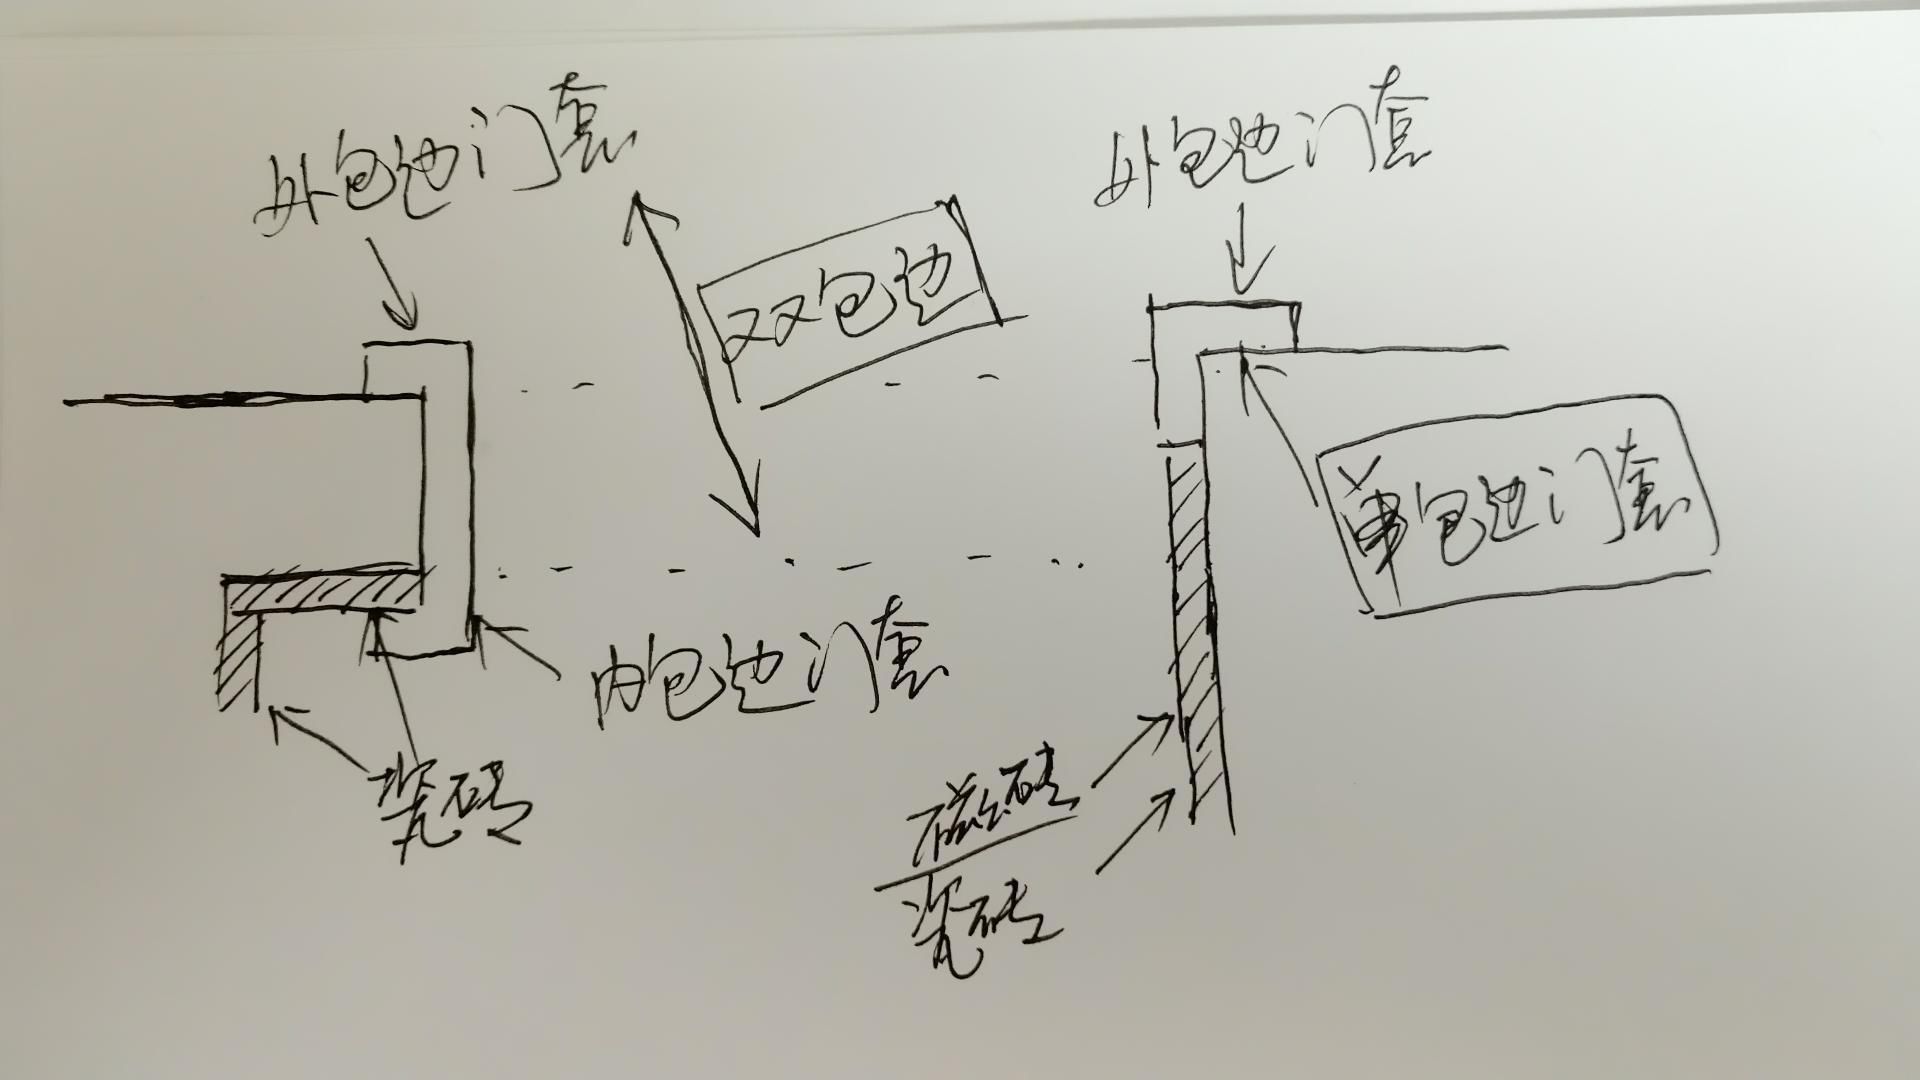 外包边门套
外包边门套
双包边
单包边门套
内包边门套
瓷砖
磁砖
瓷砖